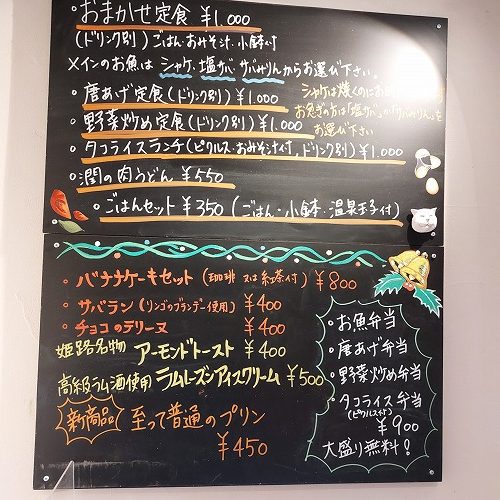 ・おまかせ定食 ¥1.000
(ドリンク別) ごはん・おみそ汁・小鉢付
メインのお魚は シャケ、塩サバ、サバみりんからお選び下さい。
・唐あげ定食(ドリンク別)¥1.000
シャケは焼くのにお
お急ぎの方は「塩サバ」か「サバみりん」を
お選び下さい
・野菜炒め定食(ドリンク別)¥1.000
・タコライスランチ(ピクルス・おみそ汁付、ドリンク別)¥1.000
・潤の肉うどん ¥550
・ごはんセット ¥350(ごはん・小鉢・温泉玉子付)
・バナナケーキセット(珈琲 又は 紅茶付)¥800
・サバラン(リンゴのブランデー使用)¥400
・チョコのテリーヌ ¥400
姫路名物 アーモンドトースト ¥400
高級ラム酒使用 ラムレーズンアイスクリーム ¥500
新商品 至って普通のプリン
¥450
・お魚弁当
・唐あげ弁当
・野菜炒め弁当
・タコライス弁当
(ピクルス付)
¥900
大盛り無料!